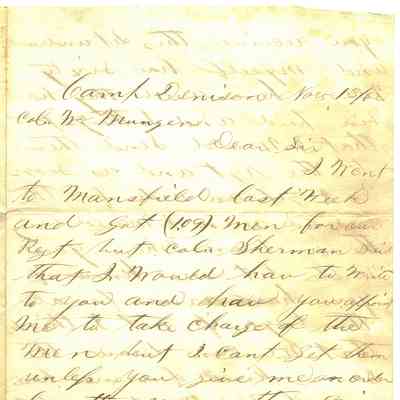 Camp Denison Nov 13/62
Col. Wm Mungen
Dear Sir
I Went
to Mansfield last Week
and Got (109) Men for our
Regt but Coln Sherman
that I Would have to Write
to you and have you
Me to take Charge of the
Men but I Cant Get them
unless you give me an order